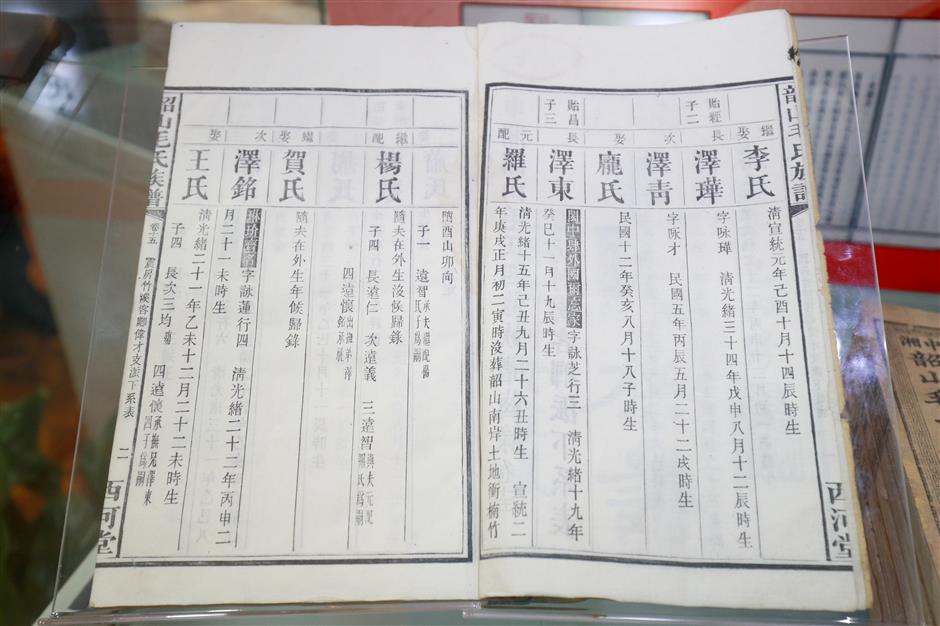 韶山毛氏族譜
西河堂
繼娶
李氏
清宣統元年己酉十月十四辰時生
貽經
子二
長
澤華
字咏華 清光緒三十四年戊申八月十二辰時生
次
澤青
字咏才 民國五年丙辰五月二十二戌時生
娶
龐氏
民國十二年癸亥八月十八子時生
貽昌
子三
長
澤東
閎中肆外國爾忘家字詠芝行三 清光緒十九年
癸巳十一月十九辰時生
元配
羅氏
清光緒十五年己丑九月二十六丑時生 宣統二
年庚戌正月初二寅時沒葬韶山南岸土地衝楠竹
酉山卯向
繼配
楊氏
子一 遠智
隨夫在外生沒候歸錄
子四 長遠仁 次遠義 三遠智
四遠懷
繼娶
賀氏
隨夫在外生年候歸錄
次
澤銘
字詠蓮行四 清光緒二十二年丙申二
月二十一未時生
娶
王氏
清光緒二十一年乙未十二月二十二未時生
子四 長次三均殤 四遠懷承撫兄澤東四子爲嗣
韶山毛氏族譜
卷十五
二
西河堂